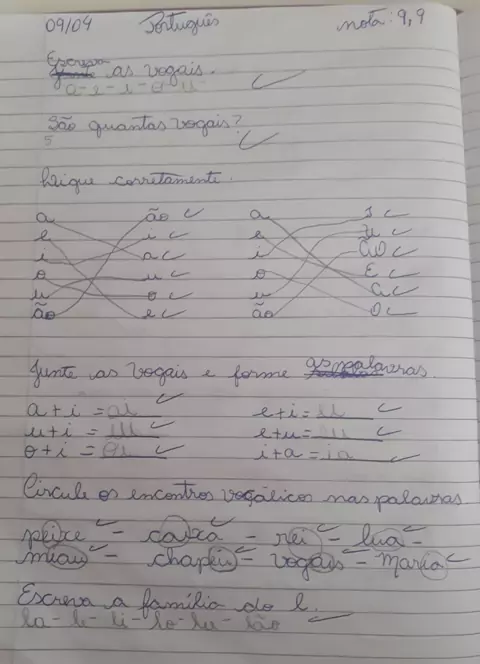 09/04 Português nota: 9,9
Escreva as vogais.
a-e-i-o-u
São quantas vogais?
5
Ligue corretamente.
a ão a I
e i e U
i a i ÃO
o u o E
u o u A
ão e ão O
Junte as vogais e forme as palavras.
a+i = ai e+i = ei
u+i = ui e+u = eu
o+i = oi i+a = ia
Circule os encontros vogálicos nas palavras
peixe - caixa - rei - lua -
miau - chapéu - vogais - Maria
Escreva a família do l.
la - le - li - lo - lu - lão